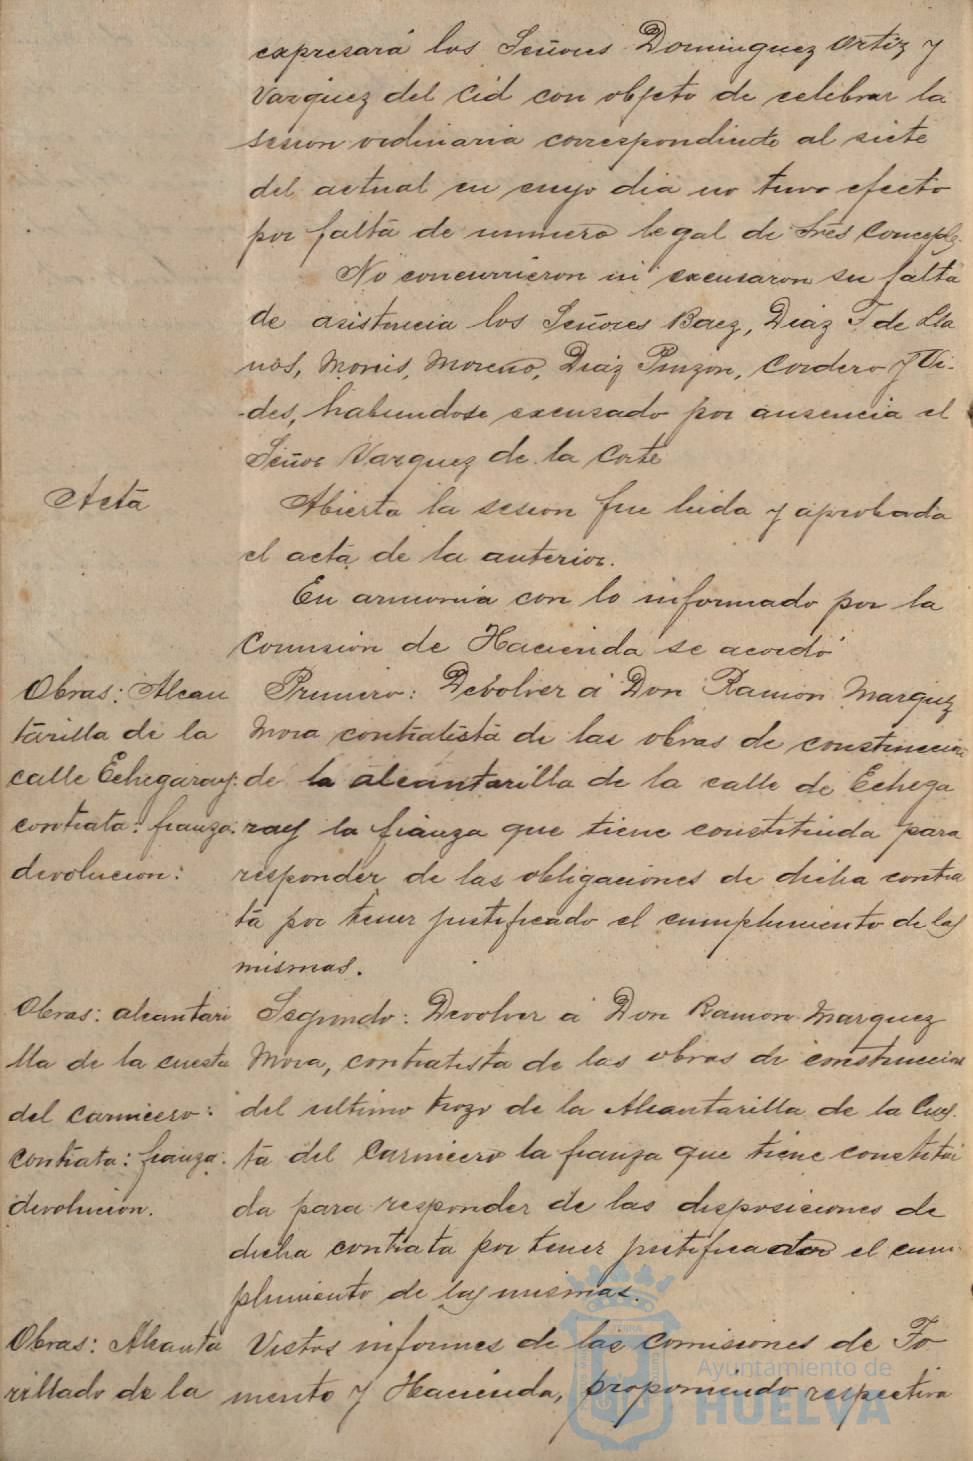 expresará los Señores Dominguez Ortiz y
Vazquez del Cid con objeto de celebrar la
sesion ordinaria correspondiente al siete
del actual en cuyo dia no tuvo efecto
por falta de numero legal de Sres Concejls.
No concurrieron ni excusaron su falta
de asistencia los Señores Baez, Diaz F de Lla
nos, Monis, Moreno, Diaz Pinzon, Cordero y Vi-
des, habiendose excusado por ausencia el
Señor Vazquez de la Corte
Acta
Abierta la sesion fue leida y aprobada
el acta de la anterior.
En armonia con lo informado por la
Comision de Hacienda se acordó
Obras: Alcan
tarilla de la
calle Echegaray:
contrata: fianza:
devolucion:
Primero: Debolver á Don Ramon Marquez
Mora contratista de las obras de construccion
de la alcantarilla de la calle de Echega
ray la fianza que tiene constituida para
responder de las obligaciones de dicha contra
ta por tener justificado el cumplimiento de las
mismas.
Obras: alcantari
lla de la cuesta
del carnicero:
contrata: fianza:
devolucion.
Segundo: Devolver á Don Ramon Marquez
Mora, contratista de las obras de construccion
del ultimo trozo de la Alcantarilla de la Cues-
ta del Carnicero la fianza que tiene constitui
da para responder de las disposiciones de
dicha contrata por tener justificador el cum-
plimiento de las mismas.
Obras: Alcanta
rillado de la
Vistos informes de las Comisiones de Fo
mento y Hacienda, proponiendo respectiva
Ayuntamiento de
HUELVA